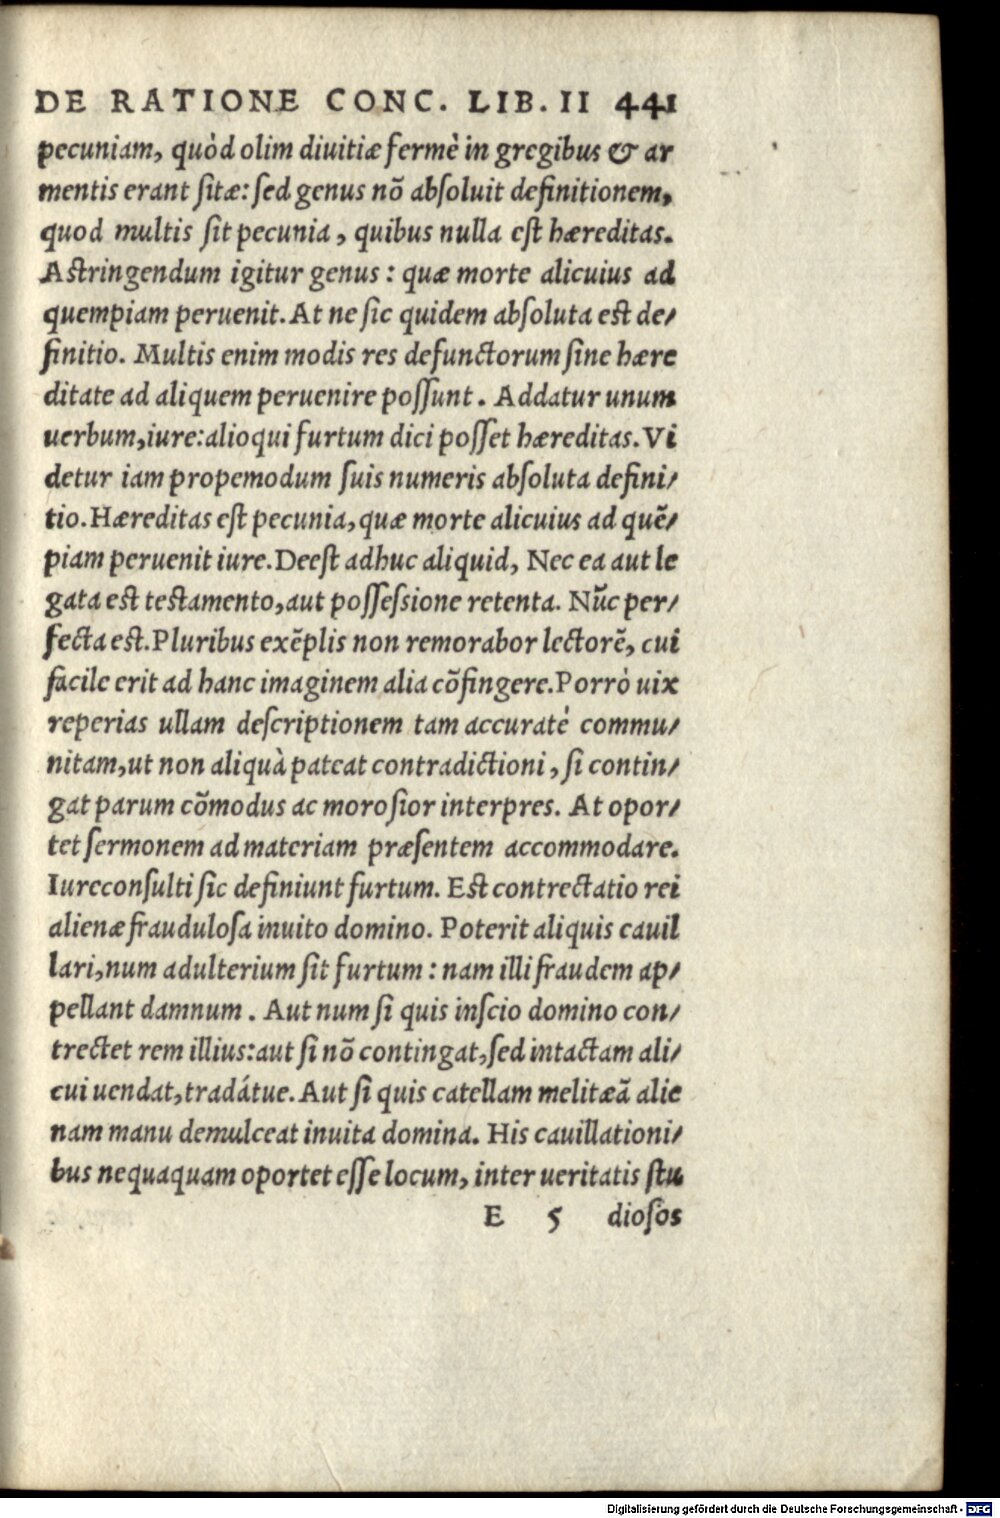 DE RATIONE CONC. LIB. II 441
pecuniam, quòd olim diuitiæ fermè in gregibus & ar
mentis erant sitæ: sed genus nõ absoluit definitionem,
quod multis sit pecunia, quibus nulla est hæreditas.
Astringendum igitur genus: quæ morte alicuius ad
quempiam peruenit. At ne sic quidem absoluta est de/
finitio. Multis enim modis res defunctorum sine hære
ditate ad aliquem peruenire possunt. Addatur unum
uerbum, iure: alioqui furtum dici posset hæreditas. Vi
detur iam propemodum suis numeris absoluta defini/
tio. Hæreditas est pecunia, quæ morte alicuius ad quẽ/
piam peruenit iure. Deest adhuc aliquid, Nec ea aut le
gata est testamento, aut possessione retenta. Nũc per/
fecta est. Pluribus exẽplis non remorabor lectorẽ, cui
facile erit ad hanc imaginem alia cõfingere. Porrò uix
reperias ullam descriptionem tam accuratè commu/
nitam, ut non aliquà pateat contradictioni, si contin/
gat parum cõmodus ac morosior interpres. At opor/
tet sermonem ad materiam præsentem accommodare.
Iureconsulti sic definiunt furtum. Est contrectatio rei
alienæ fraudulosa inuito domino. Poterit aliquis cauil
lari, num adulterium sit furtum: nam illi fraudem ap/
pellant damnum. Aut num si quis inscio domino con/
trectet rem illius: aut si nõ contingat, sed intactam ali/
cui uendat, tradátue. Aut si quis catellam melitæã alie
nam manu demulceat inuita domina. His cauillationi/
bus nequaquam oportet esse locum, inter ueritatis stu
E 5 diosos
Digitalisierung gefördert durch die Deutsche Forschungsgemeinschaft - DFG